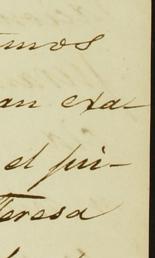 mos
an exa-
el pri-
Teresa